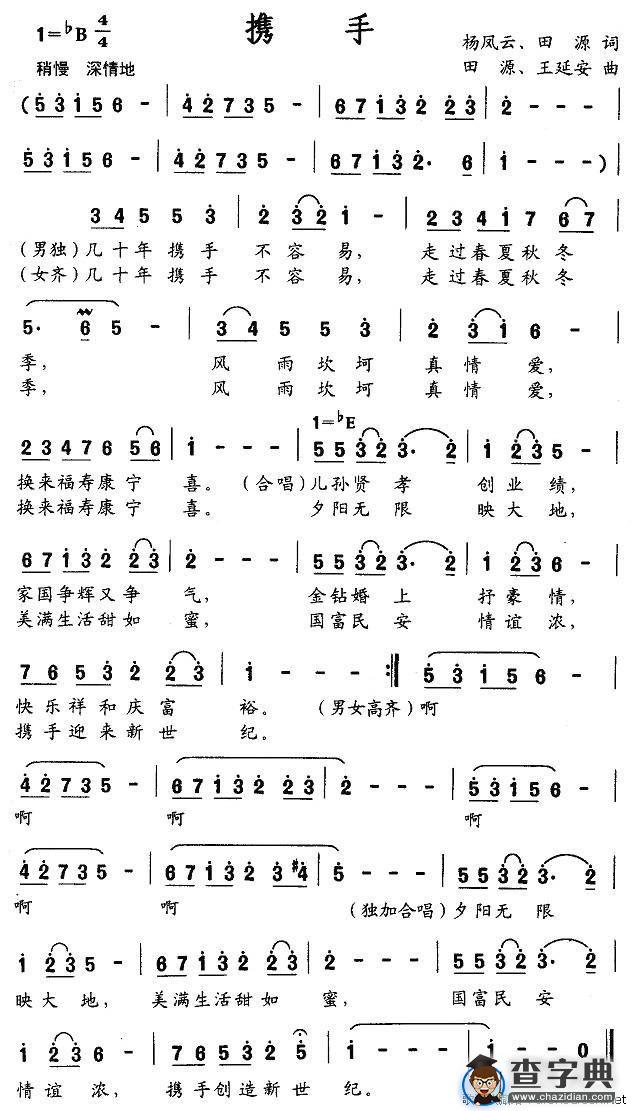 1=♭B 4/4
携 手
杨凤云、田 源 词
稍慢 深情地
田 源、王延安 曲
(5̇ 3̇ 1̇ 5 6 - | 4̇ 2̇ 7 3 5 - | 6 7 1̇ 3̇ 2̇ 2̇ 3̇ | 2̇ - - - |
5̇ 3̇ 1̇ 5 6 - | 4̇ 2̇ 7 3 5 - | 6 7 1̇ 3̇ 2̇· 6 | 1̇ - - -)
3 4 5 5 3̇ | 2̇ 3̇ 2̇ 1̇ - | 2̇ 3̇ 4̇ 1̇ 7 6 7 |
(男独)几十年携手 不容易, 走过春夏秋冬
(女齐)几十年携手 不容易, 走过春夏秋冬
5· 6 5 - | 3 4 5 5 3̇ | 2̇ 3̇ 1̇ 6 - |
季, 风雨坎坷 真情爱,
季, 风雨坎坷 真情爱,
1=♭E
2 3 4 7 6 5 6 | 1̇ - - - | 5 5 3̇ 2̇ 3̇· 2̇ | 1̇ 2̇ 3̇ 5 - |
换来福寿康宁 喜。(合唱)儿孙贤孝 创业绩,
换来福寿康宁 喜。 夕阳无限 映大地,
6 7 1̇ 3̇ 2̇ 2̇ 3̇ | 2̇ - - - | 5 5 3̇ 2̇ 3̇· 2̇ | 1̇ 2̇ 3̇ 6 - |
家国争辉又争 气, 金钻婚上 抒豪情,
美满生活甜如 蜜, 国富民安 情谊浓,
7 6 5 3̇ 2̇ 2̇ 3̇ | 1̇ - - - :‖ 5̇ 3̇ 1̇ 5 6 - |
快乐祥和庆富 裕。(男女高齐)啊
携手迎来新世 纪。
4̇ 2̇ 7 3 5 - | 6 7 1̇ 3̇ 2̇ 2̇ 3̇ | 2̇ - - - | 5̇ 3̇ 1̇ 5 6 - |
啊 啊 啊
4̇ 2̇ 7 3 5 - | 6 7 1̇ 3̇ 2̇ 3̇ #4̇ | 5̇ - - - | 5 5 3̇ 2̇ 3̇· 2̇ |
啊 啊 (独加合唱)夕阳无限
1̇ 2̇ 3̇ 5 - | 6 7 1̇ 3̇ 2̇ 2̇ 3̇ | 2̇ - - - | 5 5 3̇ 2̇ 3̇· 2̇ |
映大地, 美满生活甜如 蜜, 国富民安
1̇ 2̇ 3̇ 6 - | 7 6 5 3̇ 5̇ 2̇ | 1̇ - - - | 1̇ - - 0 ‖
情谊浓, 携手创造新世 纪。
查字典
www.chazidian.com